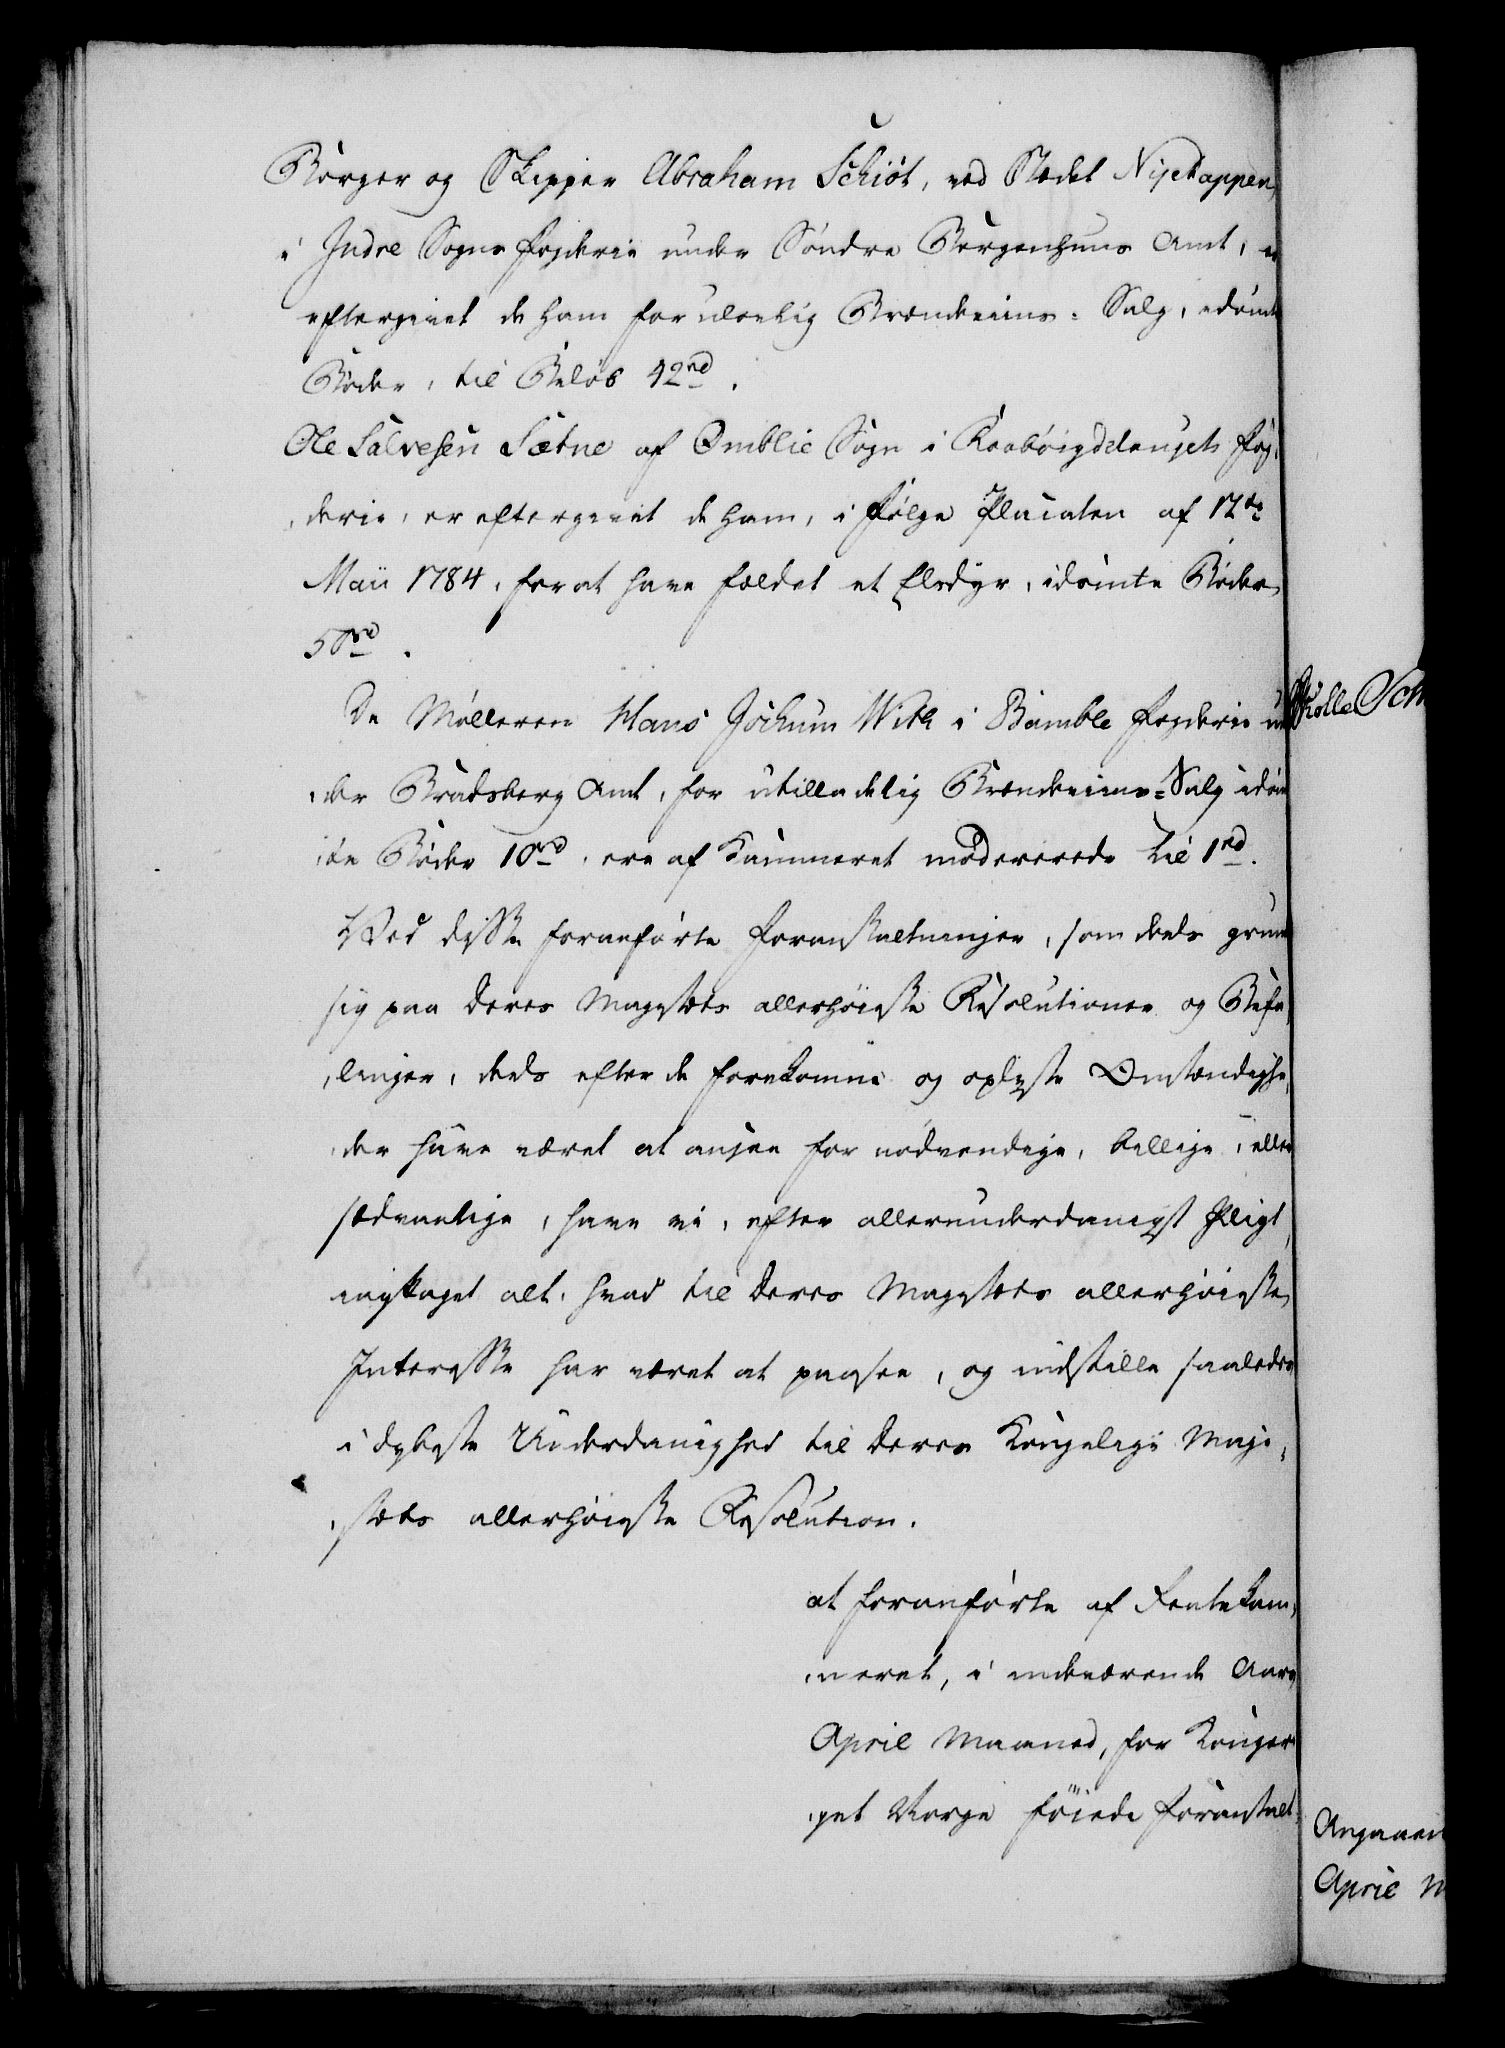 Borger og Skipper Abraham Schiøt, ved Stedet Nyekappen,
i Indre Sogns Fogderie under Søndre Bergenhuus Amt, er
eftergivet de ham for ulovlig Brændeviins-Salg, idømte
Bøder, til Beløb 42 rd.
Ole Salvesen Sætne af Omblie Sogn i Raabøigdelaugets Fog-
derie, er eftergivet de ham, i Følge Placaten af 12te
Maii 1784, for at have fældet et Elsdyr, idømte Bøder
50 rd.
De Mølleren Hans Jochum With i Bamble Fogderie un-
der Bradsberg Amt, for utilladelig Brændeviins-Salg idøm-
te Bøder 10 rd, ere af Kammeret modererede til 1 rd.
Ved disse foranførte Foranstaltninger, som deels grunde
sig paa Deres Majestæts allerhøieste Resolutioner og Befa-
linger, deels efter de forekomne og oplyste Omstændighe-
der have været at ansee for nødvendige, billige, eller
sædvanlige, have vi, efter allerunderdanigst Pligt,
iagttaget alt, hvad til Deres Majestæts allerhøieste
Interesse har været at paasee, og indstille saaledes
i dybeste Underdanighed til Deres Kongelige Maje-
stæts allerhøieste Resolution.
at foranførte af Rentekam-
meret, i indeværende Aars
April Maaned, for Konge-
get Norge føiede Foranstalt-
Angaaen
April M